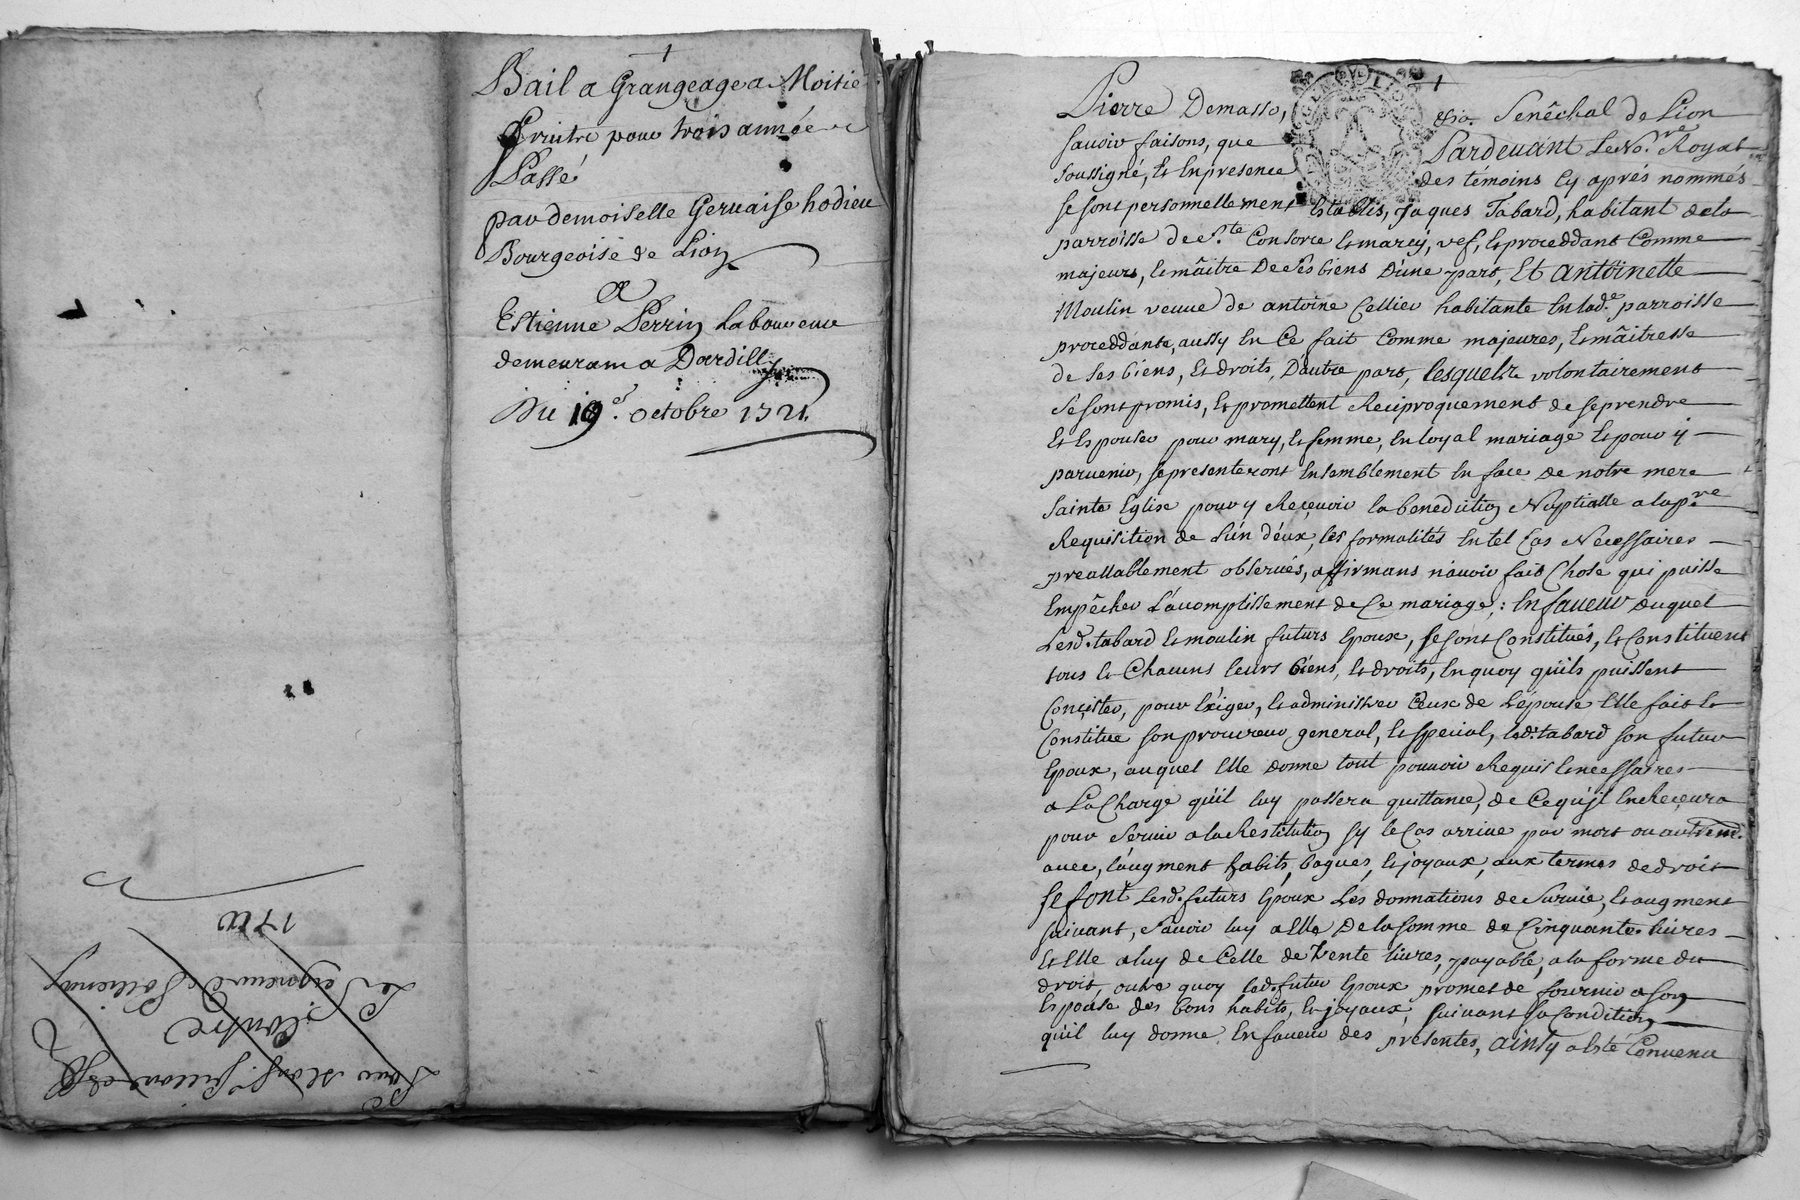 Bail a Grangeage a Moitié
fruitz pour trois années
Passé
par demoiselle Gervaise hodieu
Bourgeoise de Lion
A
Estienne Perrin laboureur
demeurant a Dardilly
Du 19e. octobre 1721.
1722
Le Seigneur de
Contre
Pour
Pierre Demasso, &a. Senêchal de Lion
savoir faisons, que Pardevant Le No.re Royal
soussigné, et en presence des temoins cy aprés nommés
se sont personnellement Etablis, Jaques Tabard, habitant de la
parroisse de S.te Consorce et marcy, vef, et proceddant Comme
majeur, et mâitre de ses biens d'une part, Et antoinette
Moulin veuve de antoine Cellier habitante en lad.e parroisse
proceddante, aussy en Ce fait Comme majeure, et mâitresse
de ses biens, et droits, D'autre part, lesquels volontairement
se sont promis, et promettent Reciproquement de se prendre
et Epouser pour mary, et femme, en loyal mariage et pour y
parvenir, se presenteront ensemblement en face de notre mere
sainte Eglise pour y Reçevoir la benediction Nuptialle a la p.re
Requisition de l'un d'eux, les formalités en tel Cas Necessaires
preallablement observés, affirmans n'avoir fait Chose qui puisse
Empêcher L'acomplissement de Ce mariage : En faveur duquel
Lesd. tabard et moulin futurs Epoux, se sont Constitués, et Constituent
tous et Chacuns leurs biens, et droits, en quoy qu'ils puissent
Conçister, pour Exiger, et administrer Ceux de L'épouse Elle fait et
Constitue son procureur general, et special, led. tabard son futur
Epoux, auquel Elle donne tout pouvoir Requis et necessaires
a La Charge qu'il luy passera quittance, de Ce qu'il En Reçevra
pour servir a la Restitution sy le Cas arrive par mort ou autrem.t
avec, l'augment habits, bagues, et joyaux, aux termes de droit
se font Lesd. futurs Epoux Les donnations de Survie, et augment
suivant, Savoir luy a Elle De la somme de Cinquante livres
et Elle a luy de Celle de Trente livres, payable, a la forme du
droit, outre quoy led. futur Epoux promet de fournir a son
Epouse des bons habits, et joyaux, suivant sa Condition
qu'il luy donne En faveur des presentes, ainsy a Eté Convenu